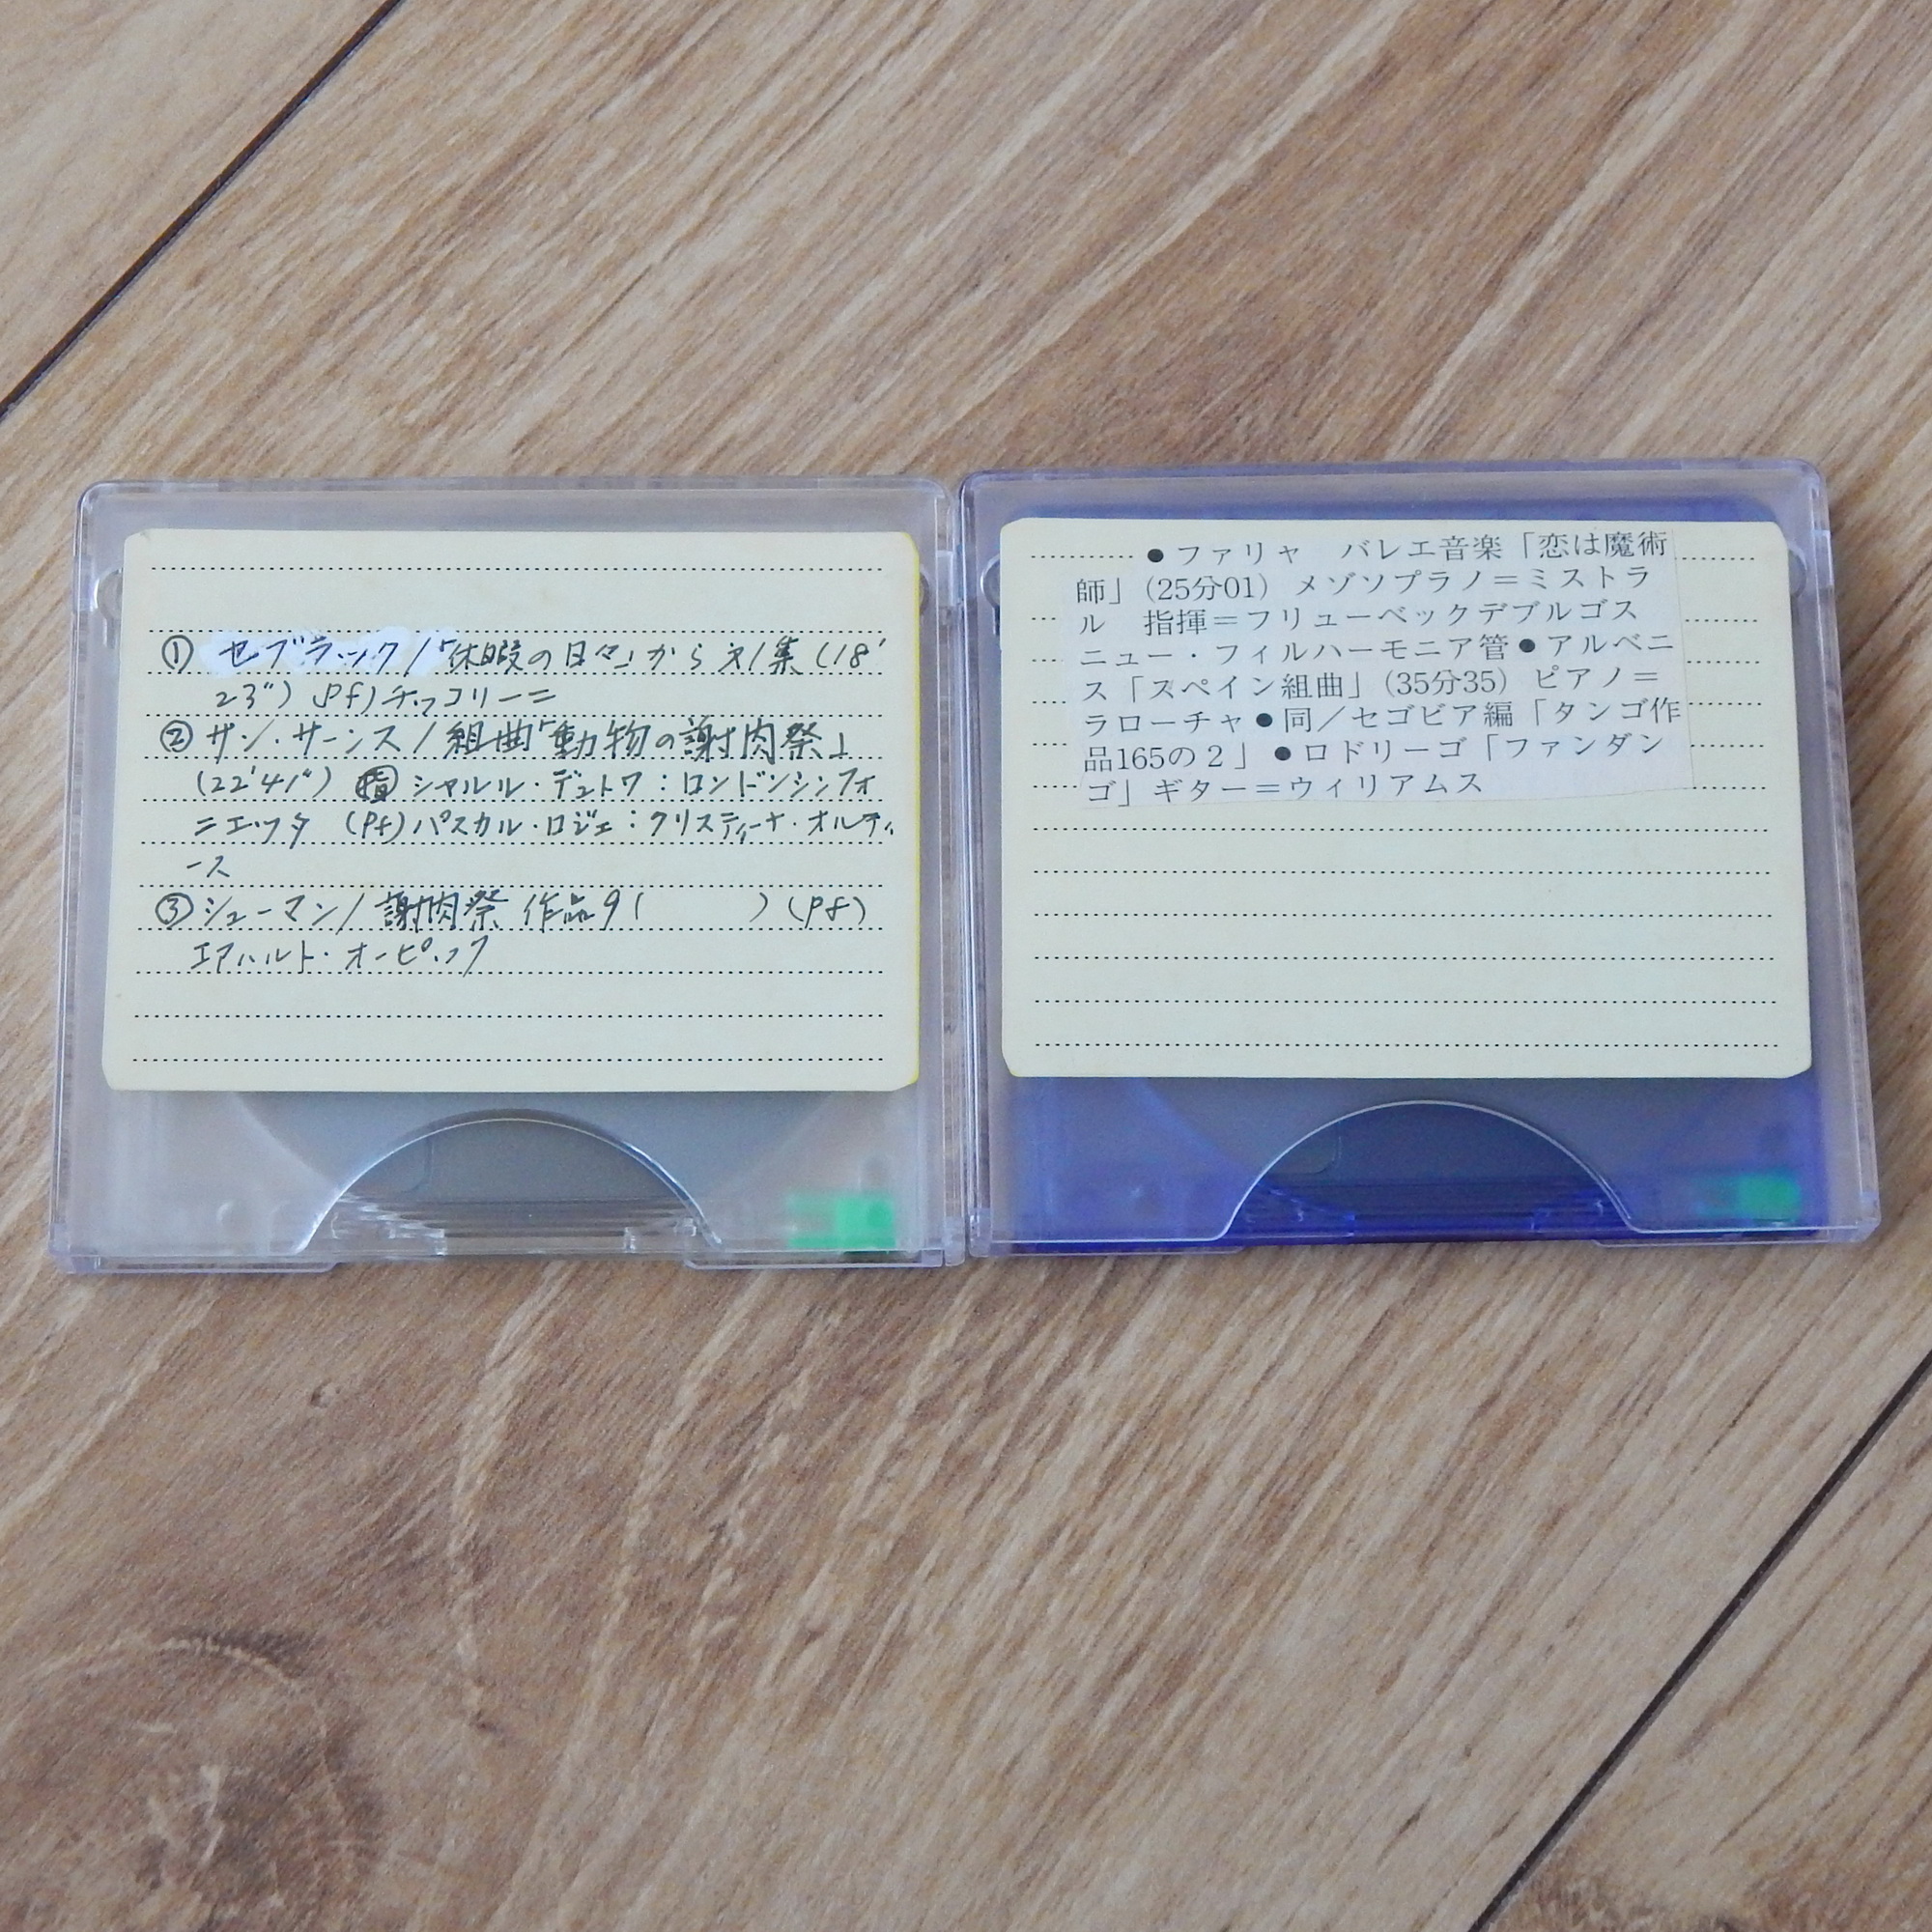 ① セブラック/「休暇の日々」から 第1集(18'
23") Pf)チッコリーニ
② サン・サーンス/組曲「動物の謝肉祭」
(22'41") 指 シャルル・デュトワ:ロンドンシンフォ
ニエッタ (Pf)パスカル・ロジェ:クリスティーナ・オルティ
ース
③ シューマン/謝肉祭 作品9( )(Pf)
エアハルト・オーピッツ
●ファリャ バレエ音楽「恋は魔術
師」(25分01) メゾソプラノ=ミストラ
ル 指揮=フリューベックデブルゴス
ニュー・フィルハーモニア管●アルベニ
ス「スペイン組曲」(35分35) ピアノ=
ラローチャ●同/セゴビア編「タンゴ作
品165の2」●ロドリーゴ「ファンダン
ゴ」ギター=ウィリアムス